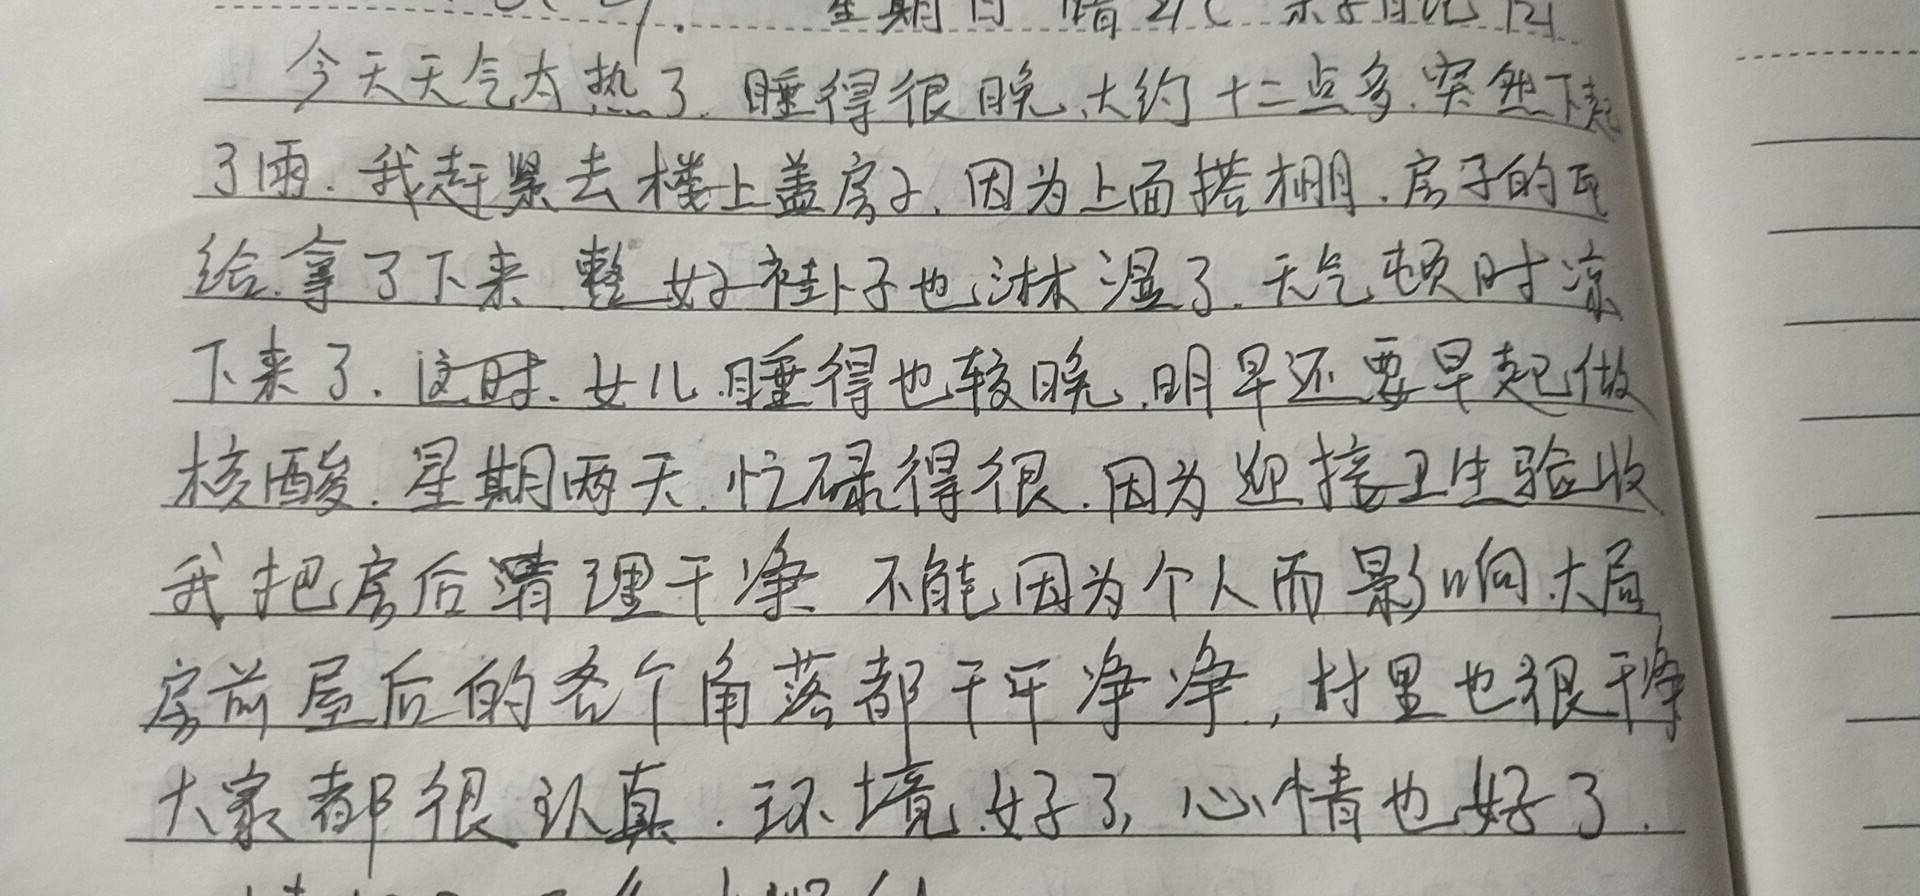 星期日 晴
今天天气太热了.睡得很晚.大约十二点多.突然下起
了雨.我赶紧去楼上盖房子.因为上面搭棚.房子的瓦
给拿了下来 整好褂子也淋湿了.天气顿时凉
下来了.这时.女儿睡得也较晚.明早还要早起做
核酸.星期两天.忙碌得很.因为迎接卫生验收
我把房后清理干净 不能因为个人而影响大局
房前屋后的各个角落都干干净净,村里也很干净
大家都很认真.环境好了,心情也好了.